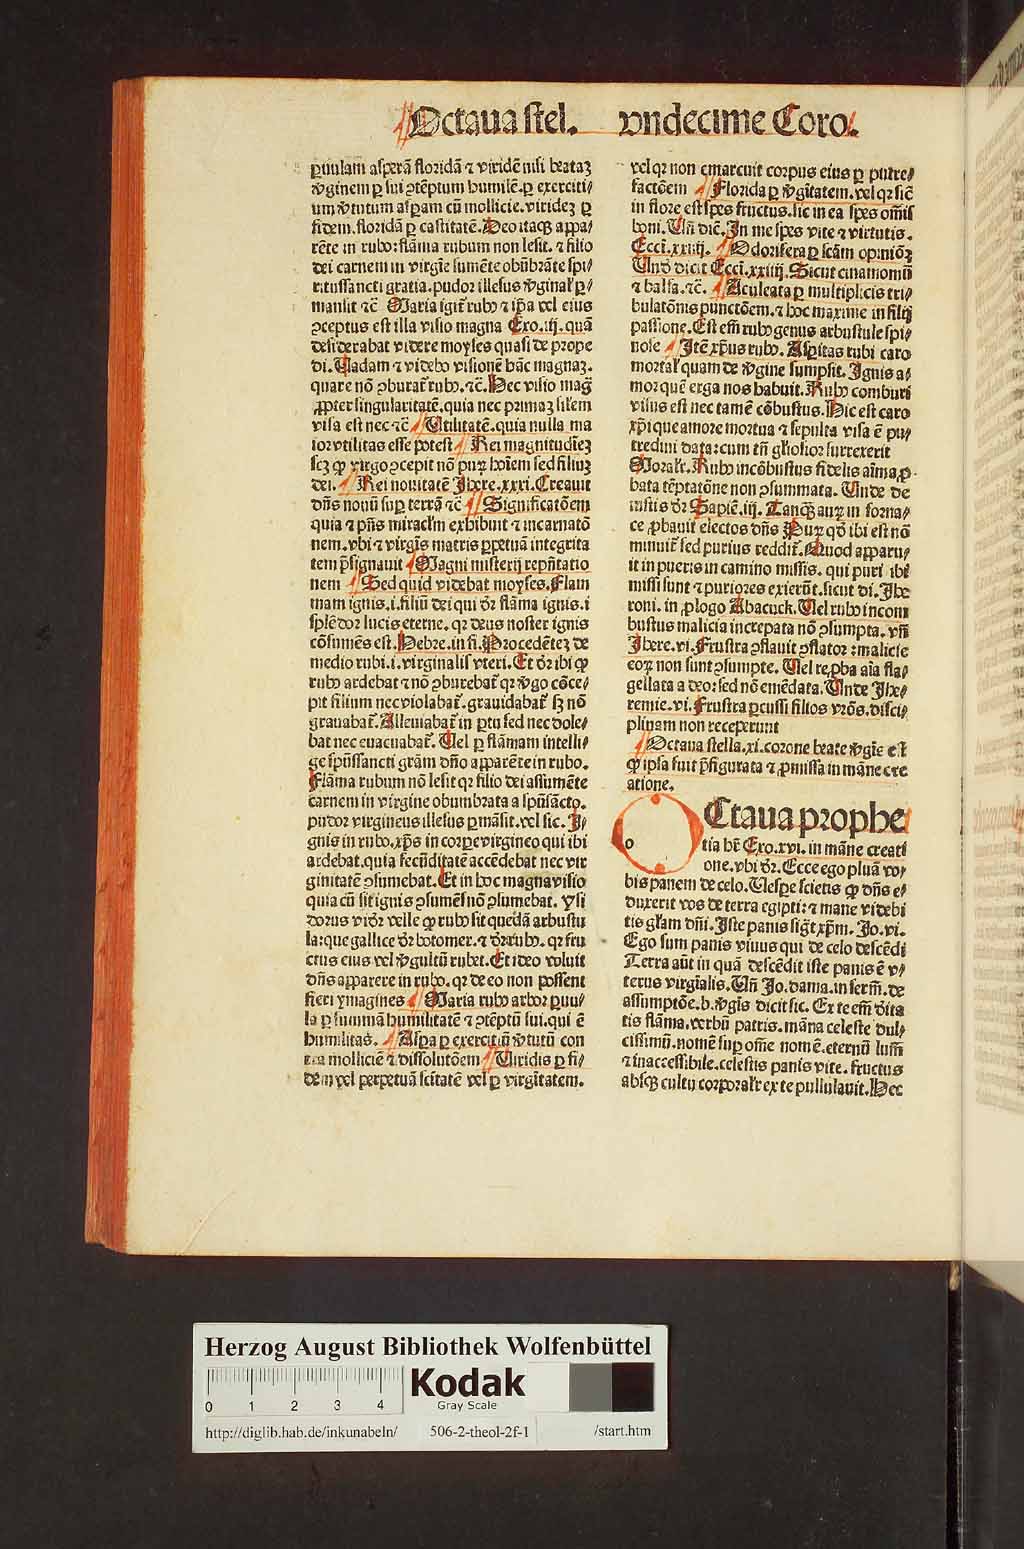 Octaua stel. vndecime Coro.
ꝑuulam asperā floridā ⁊ viridē nisi beataꝫ
v̄ginem ꝑ sui ꝯtēptum humilē. ꝑ exerciti⸗
um v̄tutum asꝑam cū mollicie. viridеꝫ ꝑ
fidem. floridā ꝑ castitatē. Deo itaqꝫ appa⸗
rēte in rubo: flāma rubum non lesit. ⁊ filio
dei carnem in virgīe sumēte obūbrāte spi⸗
ritussancti gratia. pudor illesus v̄ginal̓ ꝑ⸗
mansit ⁊c̄ Maria igit̄ rubꝰ ⁊ ip̄a vel eius
ꝯceptus est illa visio magna Exo. iij. quā
desiderabat videre moyses quasi de prope
di. Uadam ⁊ videbo visionē hāc magnaꝫ.
quare nō ꝯburat̄ rubꝰ. ⁊c̄. Hec visio maḡ
ꝓpter singularitatē. quia nec primaꝫ sil̓em
visa est nec ⁊c̄ Utilitatē. quia nulla ma
ior vtilitas esse potest Rei magnitudīeꝫ
scꝫ ꝙ virgo ꝯcepit nō puꝝ hoīem sed filiuꝫ
dei. Rei nouitatē Jhere. xxxi. Creauit
dn̄s nouū suꝑ terrā ⁊c̄ Significatōem
quia ⁊ pn̄s miracl̓m exhibuit ⁊ incarnatō
nem. vbi ⁊ virgīs matris ꝑpetuā integrita
tem p̄signauit Magni misterij rep̄ntatio
nem Sed quid videbat moyses. Flam
mam ignis. i. filiū dei qui d̄r flāma ignis. i
splēdor lucis eterne. qr deus noster ignis
cōsumēs est. Hebre. in fi. Procedētеꝫ de
medio rubi. i. virginalis vteri. Et d̄r ibi ꝙ
rubꝰ ardebat ⁊ nō ꝯburebat̄ qr v̄go cōce⸗
pit filium nec violabat̄. grauidabat̄ sꝫ nō
grauabat̄. Alleuiabat̄ in ꝑtu sed nec dole⸗
bat nec euacuabat̄. Uel ꝑ flāmam intelli⸗
ge sp̄ussancti grām dn̄o apparēte in rubo.
Flāma rubum nō lesit qr filio dei assumēte
carnem in virgine obumbrata a sp̄usācto.
pudor virgineus illesus ꝑmāsit. vel sic. I⸗
gnis in rubo. xp̄s in corꝑe virgineo qui ibi
ardebat. quia fecūditatē accēdebat nec vir
ginitatē ꝯsumebat. Et in hoc magna visio
quia cū sit ignis ꝯsumēs nō ꝯsumebat. Ysi
dorus vid̓r velle ꝙ rubꝰ sit quedā arbustu
la: que gallice d̄r botomer. ⁊ d̄r rubꝰ. qr fru
ctus eius vel v̄gultū rubet. Et ideo voluit
dn̄s apparere in rubo. qr de eo non possent
fieri ymagines Maria rubꝰ arbor ꝑuu⸗
la ꝑ summā humilitatē ⁊ ꝯtēptū sui. qui ē
humilitas. Asꝑa ꝑ exercitiū v̄tutū con
tra molliciē ⁊ dissolutōem Uiridis ꝑ fi⸗
dem vel perpetuā scītatē vel ꝑ virgītatem.
vel qr non emarcuit corpus eius ꝑ putre⸗
factōem Florida ꝑ v̄gītatem. vel qr sic̄
in flore est spes fructus. sic in ea spes om̄is
boni. Un̄ dic̄. In me spes vite ⁊ virtutis.
Ecci. xxiiij. Odorifera ꝑ scām opinōꝫ
Und̄ dicit Ecci. xxiiij. Sicut cinamomū
⁊ balsa. ⁊c̄. Aculeata ꝑ multiplicis tri⸗
bulatōnis punctōem. ⁊ hoc maxime in filij
passione. Est em̄ rubꝰ genus arbustule spi⸗
nose Itē xp̄us rubꝰ. Asꝑitas rubi caro
mortal̓ quam de v̄gine sumpsit. Ignis a⸗
mor quē erga nos habuit. Rubꝰ comburi
visus est nec tamē cōbustus. Hic est caro
xp̄i que amore mortua ⁊ sepulta visa ē pu⸗
tredini data: cum tn̄ gl̓iosior surrexerit
Moral̓r. Rubꝰ incōbustus fidelis aīma ꝓ⸗
bata tēptatōne non ꝯsummata. Unde de
iustis d̄r Sapiē. iij. Tanqꝫ auꝝ in forna⸗
ce ꝓbauit electos dn̄s Puꝝ qd̓ ibi est nō
minuit̄ sed purius reddit̄. Quod apparu⸗
it in pueris in camino missis. qui puri ibi
missi sunt ⁊ puriores exierūt. sicut di. Jhe
roni. in ꝓlogo Abacuck. Uel rubꝰ incom
bustus malicia increpata nō ꝯsumpta. vn̄
Jhere. vi. Frustra ꝯflauit ꝯflator: malicie
eoꝝ non sunt ꝯsumpte. Uel reꝓba aīa fla⸗
gellata a deo: sed nō emēdata. Unde Jhe⸗
remie. vi. Frustra ꝑcussi filios vr̄os. disci⸗
plinam non receperunt
Octaua stella. xi. corone beate v̄gīe est
ꝙ ipsa fuit p̄figurata ⁊ ꝓmissa in māne cre
atione.
o
Ctaua prophe
tia hr̄ Exo. xvi. in māne creati
one. vbi d̄r. Ecce ego pluā vo⸗
bis panem de celo. Uespe scietis ꝙ dn̄s e⸗
duxerit vos de terra egipti: ⁊ mane videbi
tis gl̓am dn̄i. Iste panis siḡt xp̄m. Jo. vi.
Ego sum panis viuus qui de celo descēdi
Terra aūt in quā descēdit iste panis ē v⸗
terus virgīalis. Un̄ Jo. dama. in serm̄. de
assumptōe. b. v̄gīs dicit sic. Ex te em̄ d̄ita
tis flāma. verbū patris. māna celeste dul⸗
cissimū. nomē suꝑ om̄e nomē. eternū lum̄
⁊ inaccessibile. celestis panis vite. fructus
absqꝫ cultu corporal̓r ex te pullulauit. Hec
Herzog August Bibliothek Wolfenbüttel
0 1 2 3 4
Kodak
Gray Scale
http://diglib.hab.de/inkunabeln/ 506-2-theol-2f-1 /start.htm